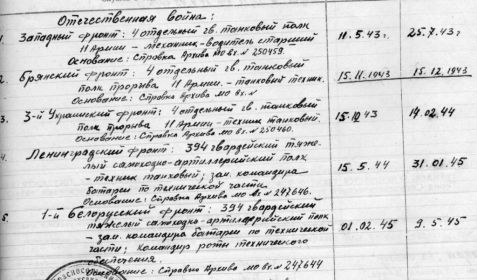 Отечественная война:
1. Западный фронт: 4 отдельный гв. танковый полк 11.5.43г. 25.7.43г.
11 Армии – механик-водитель старший
Основание: Справка Архива МО вх.№ 250459.
2. Брянский фронт: 4 отдельный гв. танковый 15.11.1943 15.12.1943
полк прорыва 11 Армии. – танковый техник.
Основание: Справка Архива МО вх.№
3. 3-й Украинский фронт: 4 отдельный гв. танковый 15.12.43 14.02.44
полк прорыва 11 Армии – техник танковый.
Основание: Справка Архива МО вх.№ 250460.
4. Ленинградский фронт: 394 гвардейский тяже-
лый самоходно-артиллерийский полк 15.5.44 31.01.45
– техник танковый; зам. командира
батареи по технической части.
Основание: Справка Архива МО вх.№ 247646.
5. 1-й Белорусский фронт: 394 гвардейский
тяжелый самоходно-артиллерийский полк
– зам. командира батареи по технической 01.02.45 9.5.45
части; командир роты технического
обеспечения.
Основание: Справка Архива МО вх.№ 247644